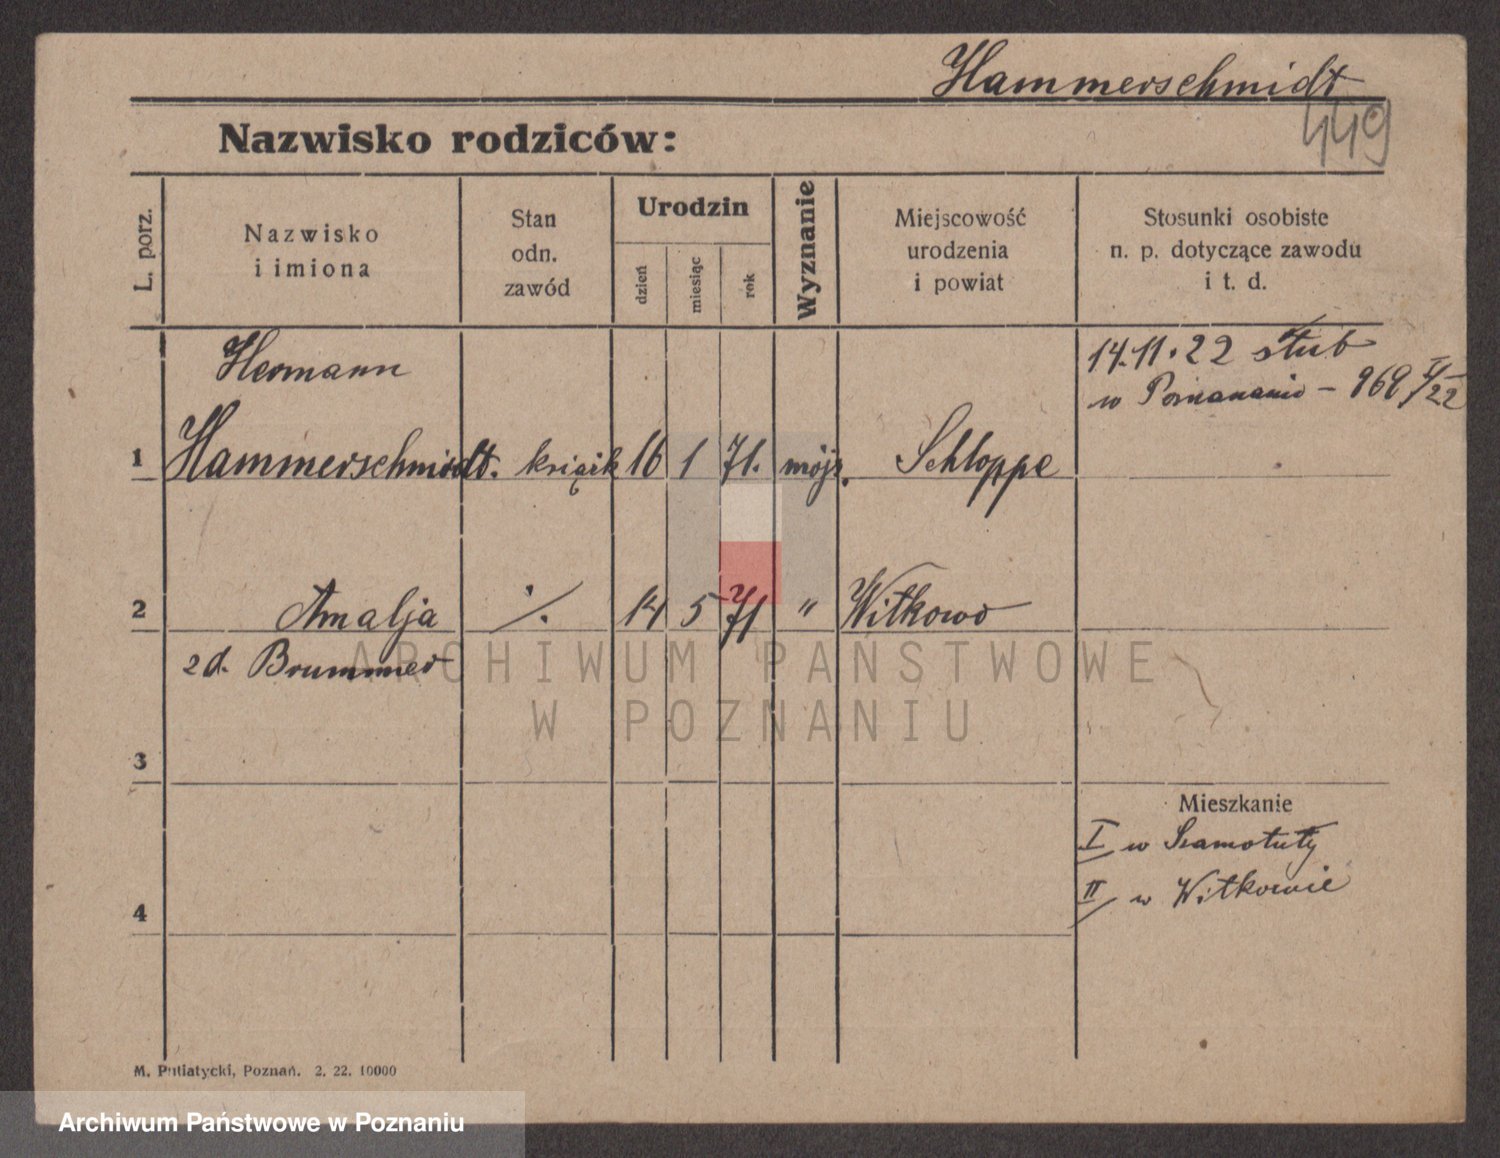 Hammerschmidt
449
Nazwisko rodziców:
L. porz.
Nazwisko
i imiona
Stan
odn.
zawód
Urodzin
dzień
miesiąc
rok
Wyznanie
Miejscowość
urodzenia
i powiat
Stosunki osobiste
n. p. dotyczące zawodu
i t. d.
Hermann
14.11.22 ślub
w Poznananiu – 969 I/22
1 Hammerschmidt. książk 16 1 71. mojż. Schloppe
2 Amalja ./. 14 5 71 " Witkowo
zd. Brummer
3
Mieszkanie
I w Szamotuły
II w Witkowie
4
M. Putiatycki, Poznań. 2. 22. 10000
ARCHIWUM PAŃSTWOWE
W POZNANIU
Archiwum Państwowe w Poznaniu